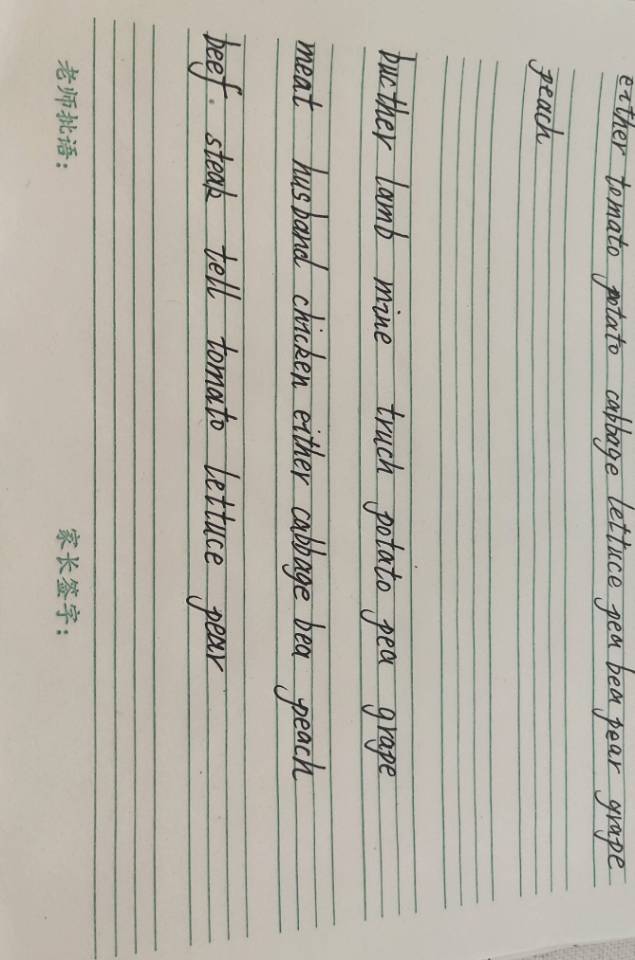 either tomato potato cabbage lettuce pea bea pear grape
peach
bucther lamb mine truch potato pea grape
meat husband chicken either cabbage bea peach
beef. steak tell tomato lettuce pear
老师批语： 家长签字：